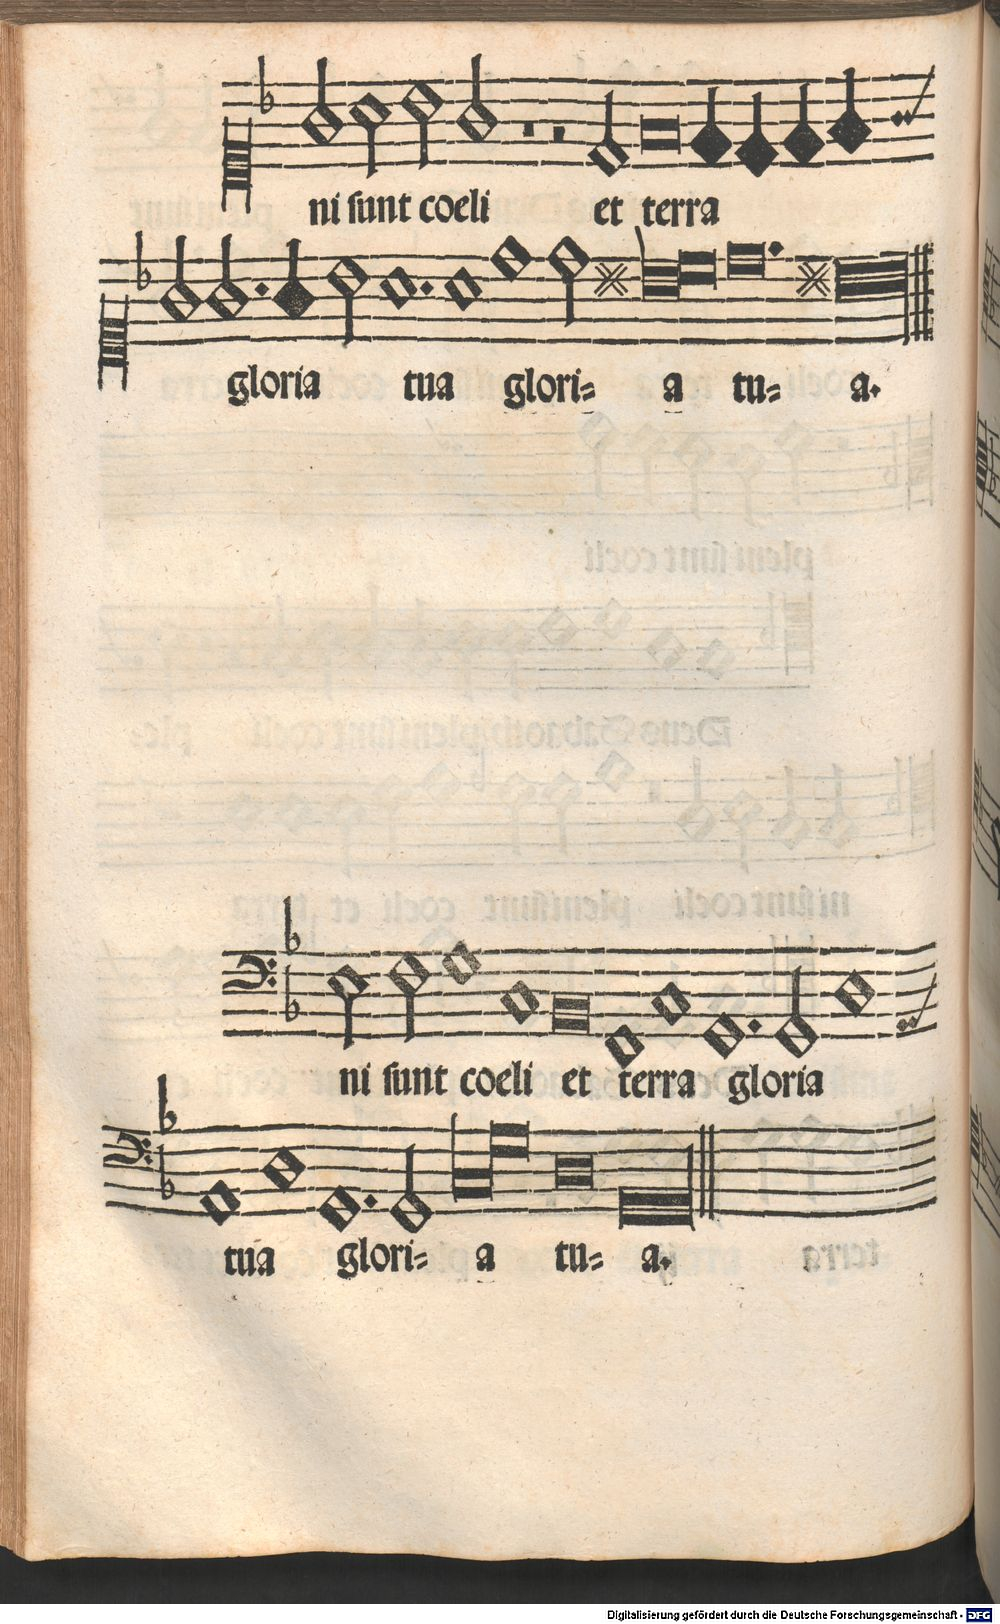 ni sunt coeli et terra
gloria tua glori= a tu= a.
ni sunt coeli et terra gloria
tua glori= a tu= a.
Digitalisierung gefördert durch die Deutsche Forschungsgemeinschaft - DFG